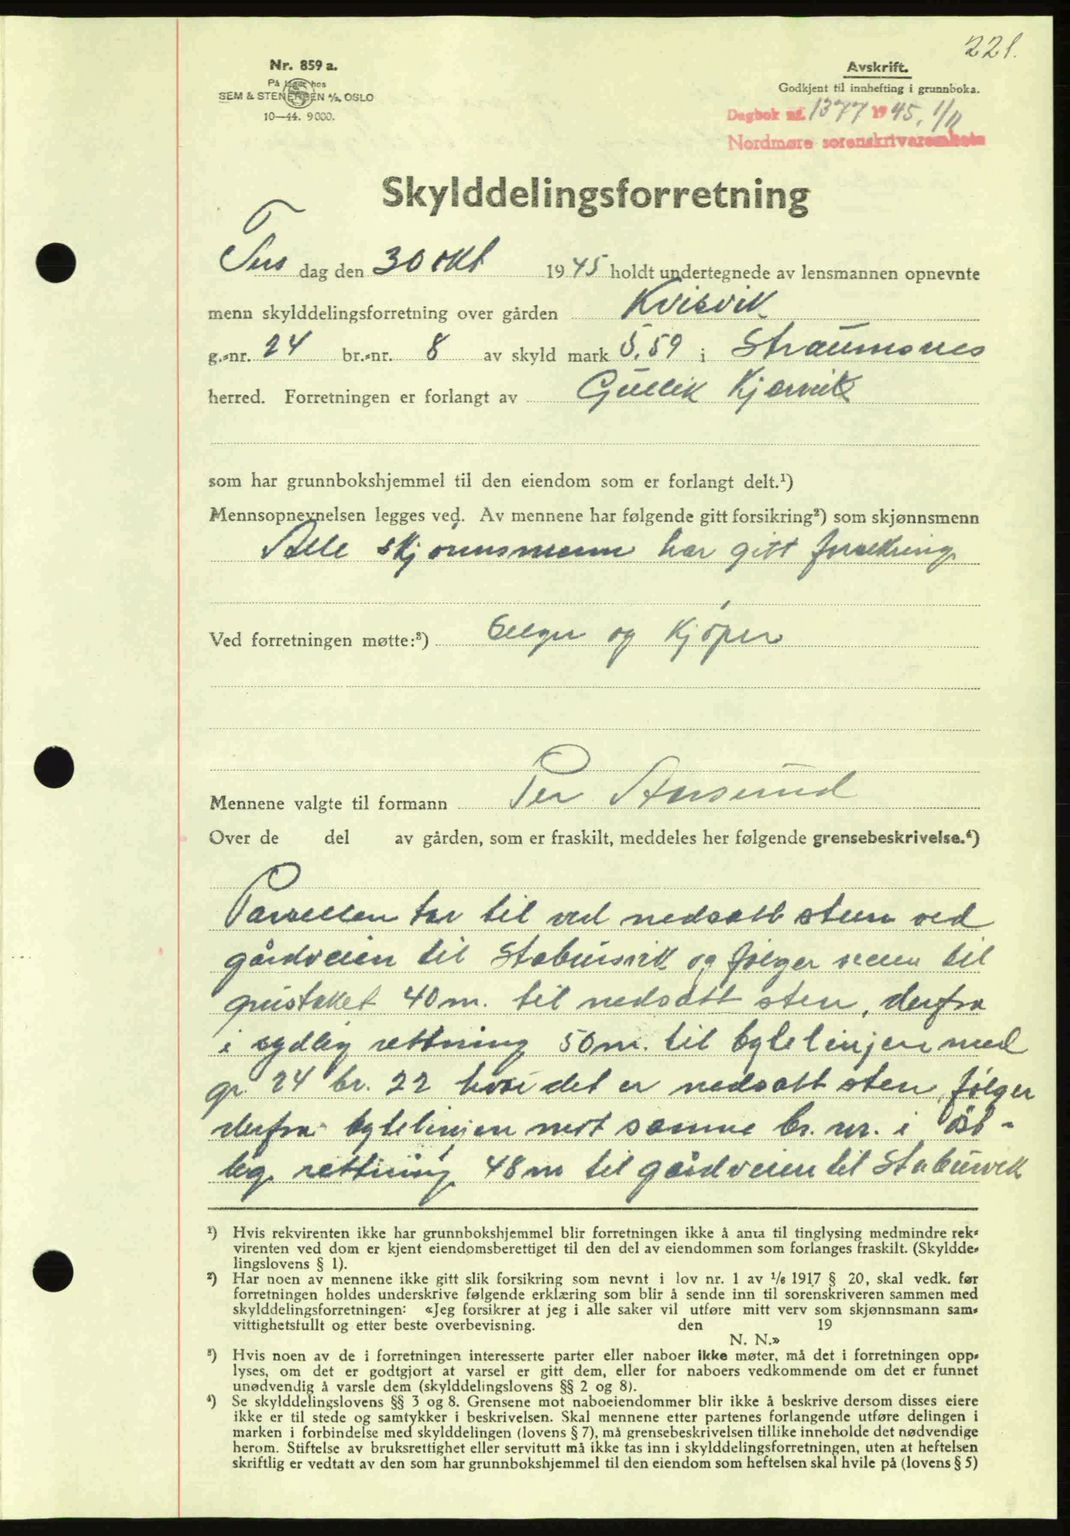 221.
Nr. 859 a.
På lager hos
SEM & STENERSEN A/S, OSLO
10—44. 9000.
Avskrift.
Godkjent til innhefting i grunnboka.
Dagbok nr. 1377 1945. 1/11
Nordmøre sorenskriverembete
Skylddelingsforretning
Tirs dag den 30 okt 19 45 holdt undertegnede av lensmannen opnevnte
menn skylddelingsforretning over gården Kvisvik
g.-nr. 24 br.-nr. 8 av skyld mark 5.59 i Straumsnes
herred. Forretningen er forlangt av Gullik Kjørsvik
som har grunnbokshjemmel til den eiendom som er forlangt delt.¹)
Mennsopnevnelsen legges ved. Av mennene har følgende gitt forsikring²) som skjønnsmenn
Alle skjønnsmenn har gitt forsikring
Ved forretningen møtte:³) Selger og Kjøper
Mennene valgte til formann Per
Over de del av gården, som er fraskilt, meddeles her følgende grensebeskrivelse.⁴)
Parsellen tar til ved nedsatt sten ved
gårdveien til Stabursvik og følger veien til
40 m. til nedsatt sten, derfra
i sydlig rettning 50 m. til bytelinjen med
gr. 24 br. 22 hvor det er nedsatt sten, følger
derfra bytelinjen mot samme br. nr. i øst-
lig rettning 48 m til gårdveien til Stabursvik
¹) Hvis rekvirenten ikke har grunnbokshjemmel blir forretningen ikke å anta til tinglysing medmindre rek-
virenten ved dom er kjent eiendomsberettiget til den del av eiendommen som forlanges fraskilt. (Skyldde-
lingslovens § 1).
²) Har noen av mennene ikke gitt slik forsikring som nevnt i lov nr. 1 av 1/6 1917 § 20, skal vedk. før
forretningen holdes underskrive følgende erklæring som blir å sende inn til sorenskriveren sammen med
skylddelingsforretningen: «Jeg forsikrer at jeg i alle saker vil utføre mitt verv som skjønnsmann sam-
vittighetsfullt og etter beste overbevisning. den 19
N. N.»
³) Hvis noen av de i forretningen interesserte parter eller naboer ikke møter, må det i forretningen opp-
lyses, om det er godtgjort at varsel er gitt dem, eller for naboers vedkommende om det er funnet
unødvendig å varsle dem (skylddelingslovens §§ 2 og 8).
⁴) Se skylddelingslovens §§ 3 og 8. Grensene mot naboeiendommer blir ikke å beskrive dersom disses eiere
ikke er til stede og samtykker i beskrivelsen. Skal mennene etter partenes forlangende utføre delingen i
marken i forbindelse med skylddelingen (lovens § 7), må grensebeskrivelsen tillike inneholde det nødvendige
herom. Stiftelse av bruksrettighet eller servitutt må ikke tas inn i skylddelingsforretningen, uten at heftelsen
skriftlig er vedtatt av den som har grunnbokshjemmel til den eiendom som heftelsen skal hvile på (lovens § 5)